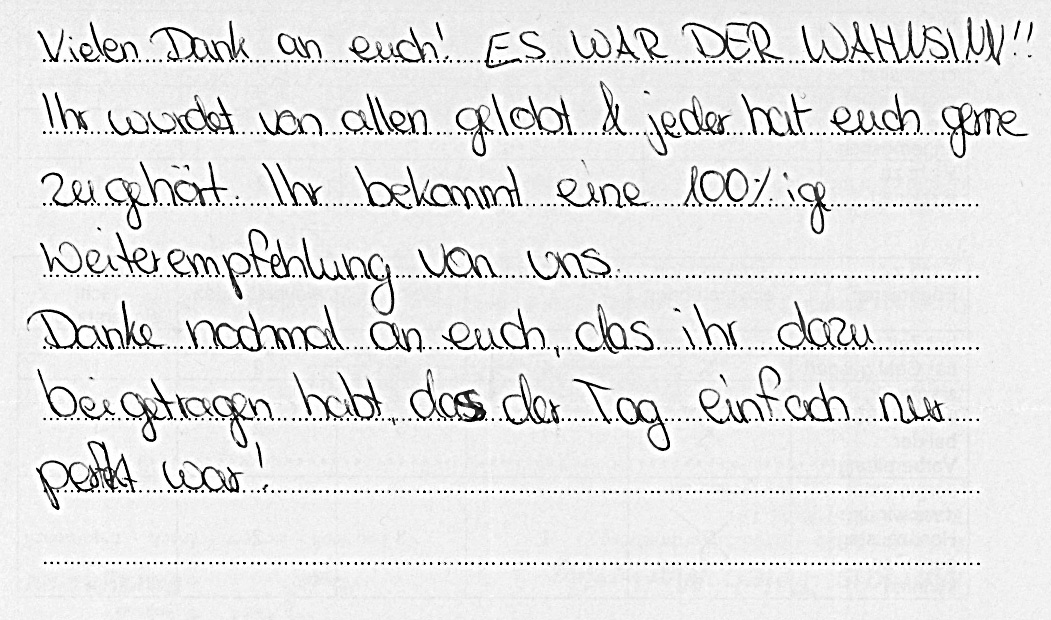 Vielen Dank an euch! ES WAR DER WAHNSINN!!
Ihr wurdet von allen gelobt & jeder hat euch gerne
zugehört. Ihr bekommt eine 100%ige
Weiterempfehlung von uns.
Danke nochmal an euch, das ihr dazu
beigetragen habt, das der Tag einfach nur
perfekt war!